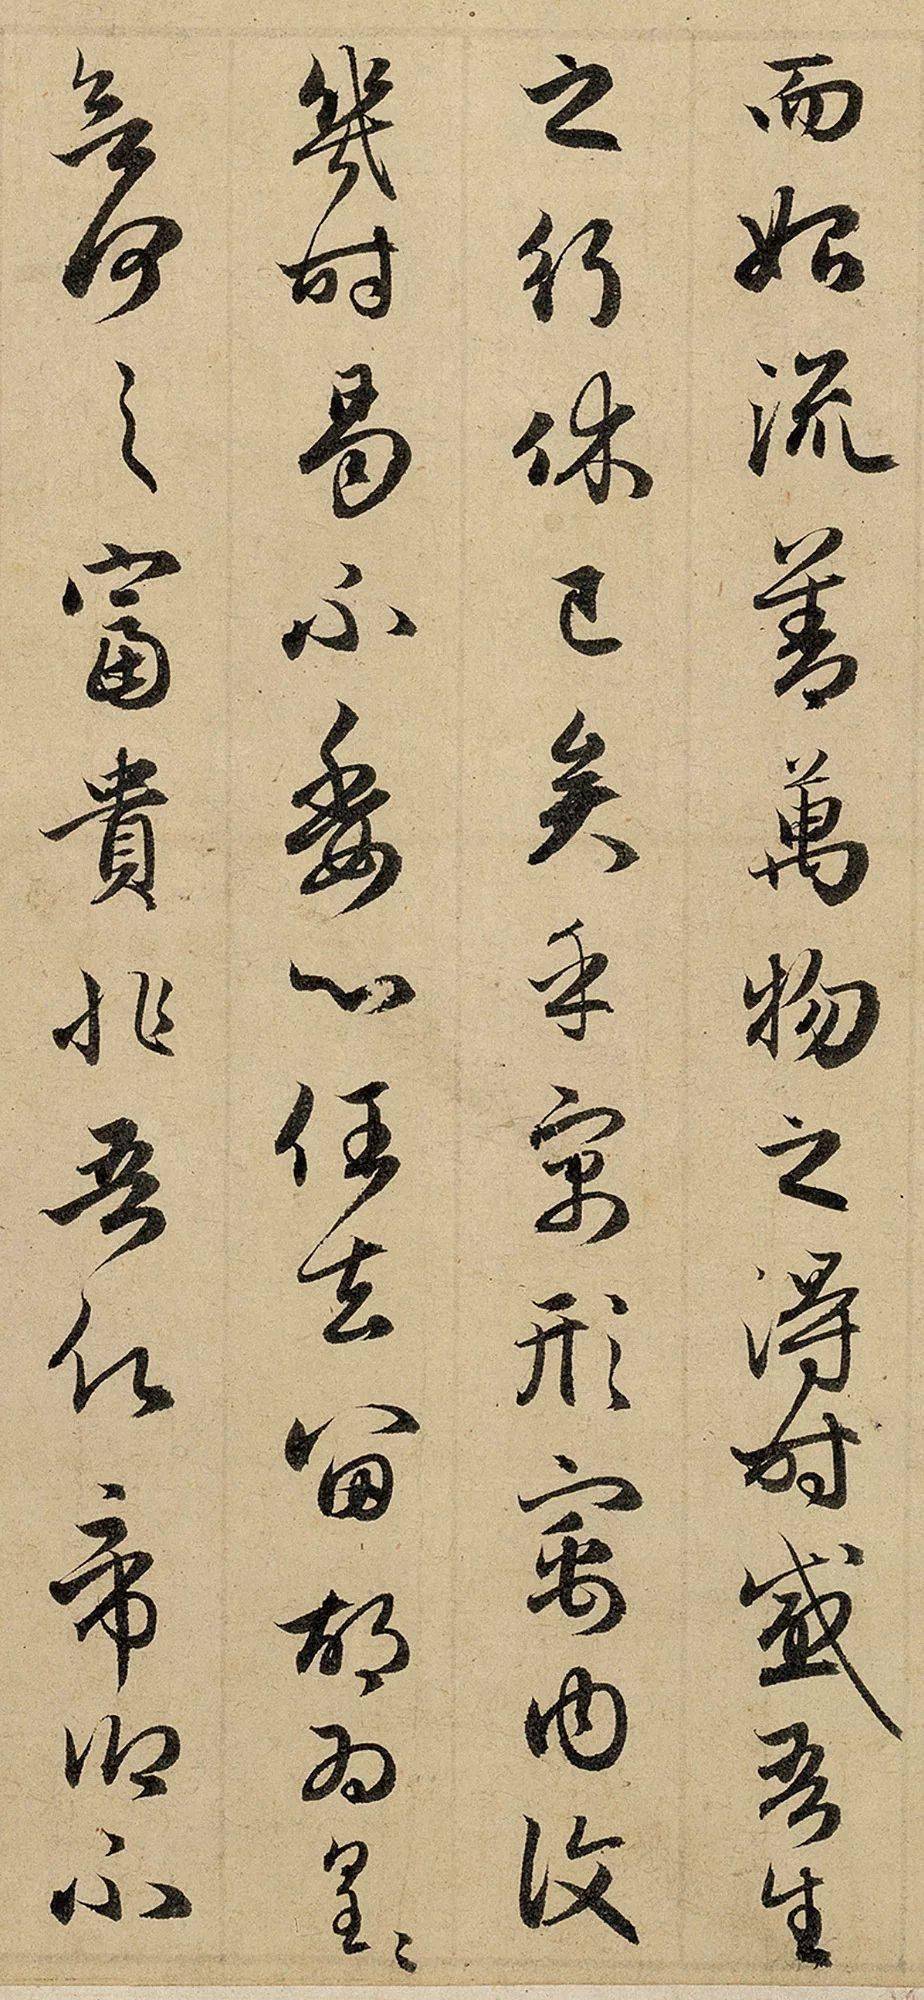 而始流善萬物之得時感吾生
之行休已矣乎寓形寓內復
幾時曷不委心任去留胡爲皇〻
欲何之富貴非吾願帝鄉不